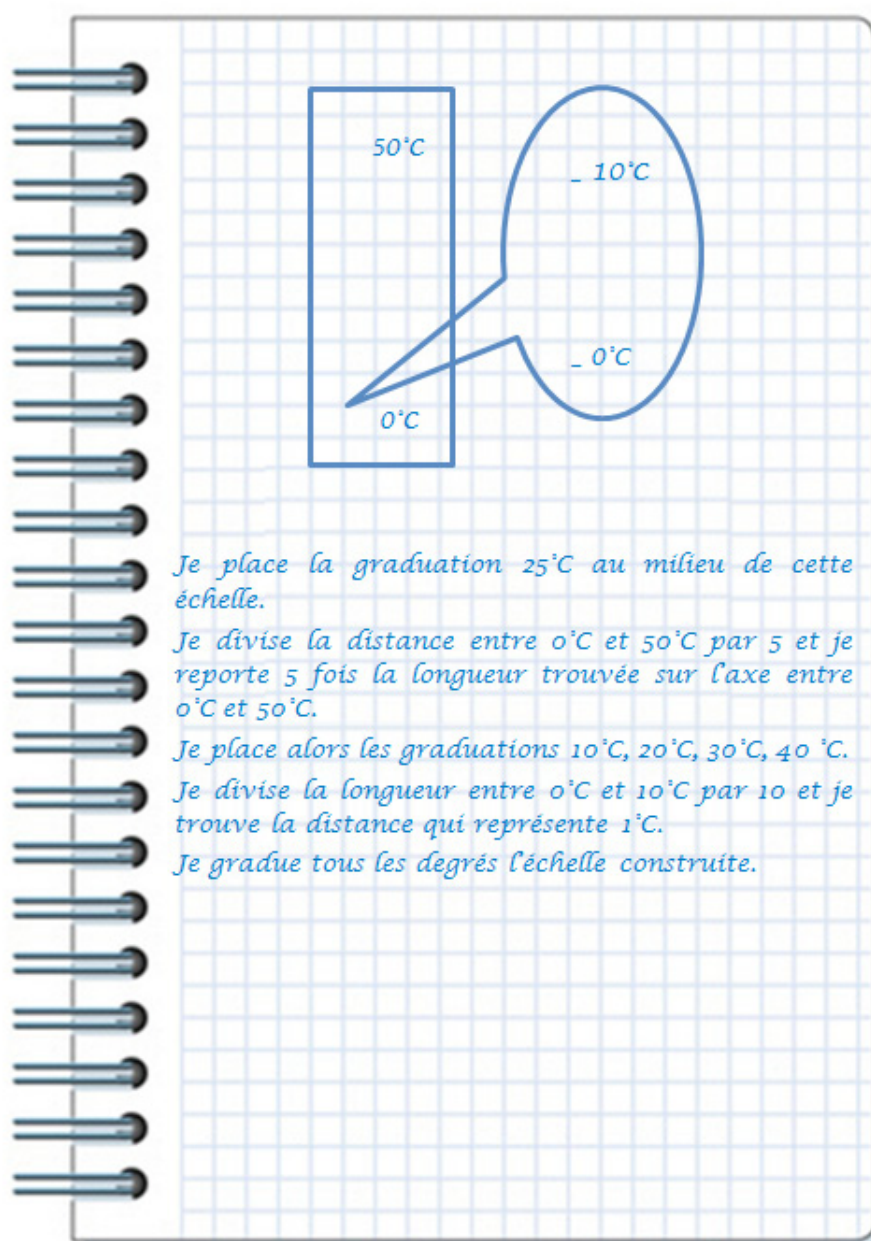 50°C
_ 10°C
_ 0°C
0°C
Je place la graduation 25°C au milieu de cette
échelle.
Je divise la distance entre 0°C et 50°C par 5 et je
reporte 5 fois la longueur trouvée sur l'axe entre
0°C et 50°C.
Je place alors les graduations 10°C, 20°C, 30°C, 40 °C.
Je divise la longueur entre 0°C et 10°C par 10 et je
trouve la distance qui représente 1°C.
Je gradue tous les degrés l'échelle construite.